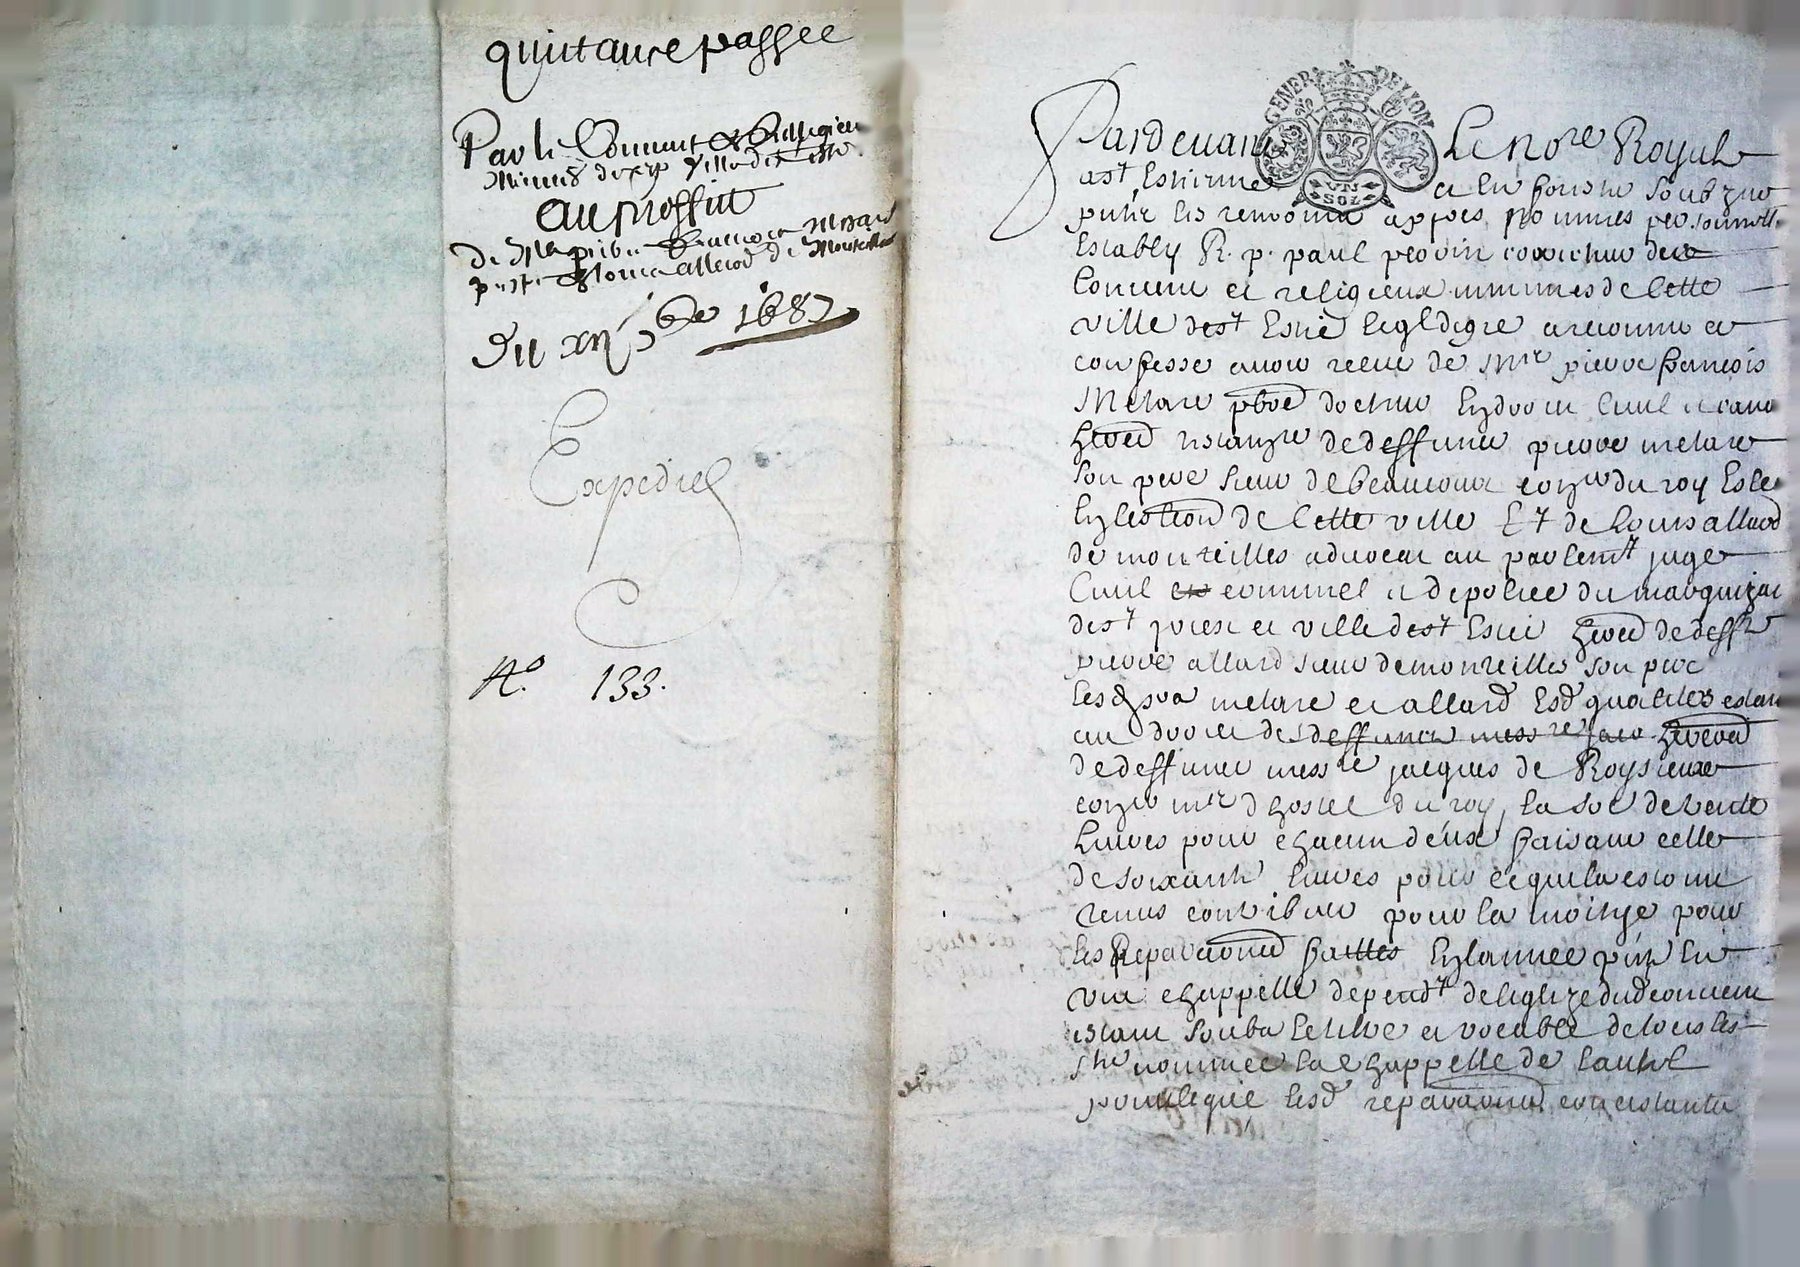 quittance passee
Par le Convent & Relligieux
Minimes de cette ville de St
Au proffit
De Mre pierre francois Metare
pbre & Louis Allard de Montreilles
Du xn 9bre 1687
Expedié
No. 133.
GENER DE LYON
UN SOL
Pardevant Le nore Royal
a st Estienne et En presence
establY R. p. paul perrin correcteur de
Convent et religieux minimes de Cette
ville de st Estie lequel de gre a reconnu et
confesse avoir receu de Mre pierre francois
Metare pbre docteur En droict Civil et canon
de deffunct pierre metare
son pere sieur de beaucourt conser du roy En le
Eslection de Cette ville Et de Louis allard
de montreilles advocat au parlemt juge
Civil et criminel et de police du marquizat
de st priest et ville de st Estie de defft
pierre allard sieur de montreilles son pere
Lesd srs metare et allard Esd qualites estant
au droict des deffunct messre jacq
de deffunct messre jacques de Roysieux
conser mre d hostel du roy la soe de trente
Livres pour chacun deux faisant celle
de soixante Livres pour ce quils estoient
tenus contribuer pour la moitye pour
les Reparations faittes En lannee pnte En
une chappelle dependt de leglize dud convent
estant soubs Le tiltre et vocable de tous les
sts nommee la chappelle de Lautel
privilegie Lesd reparations consistantes